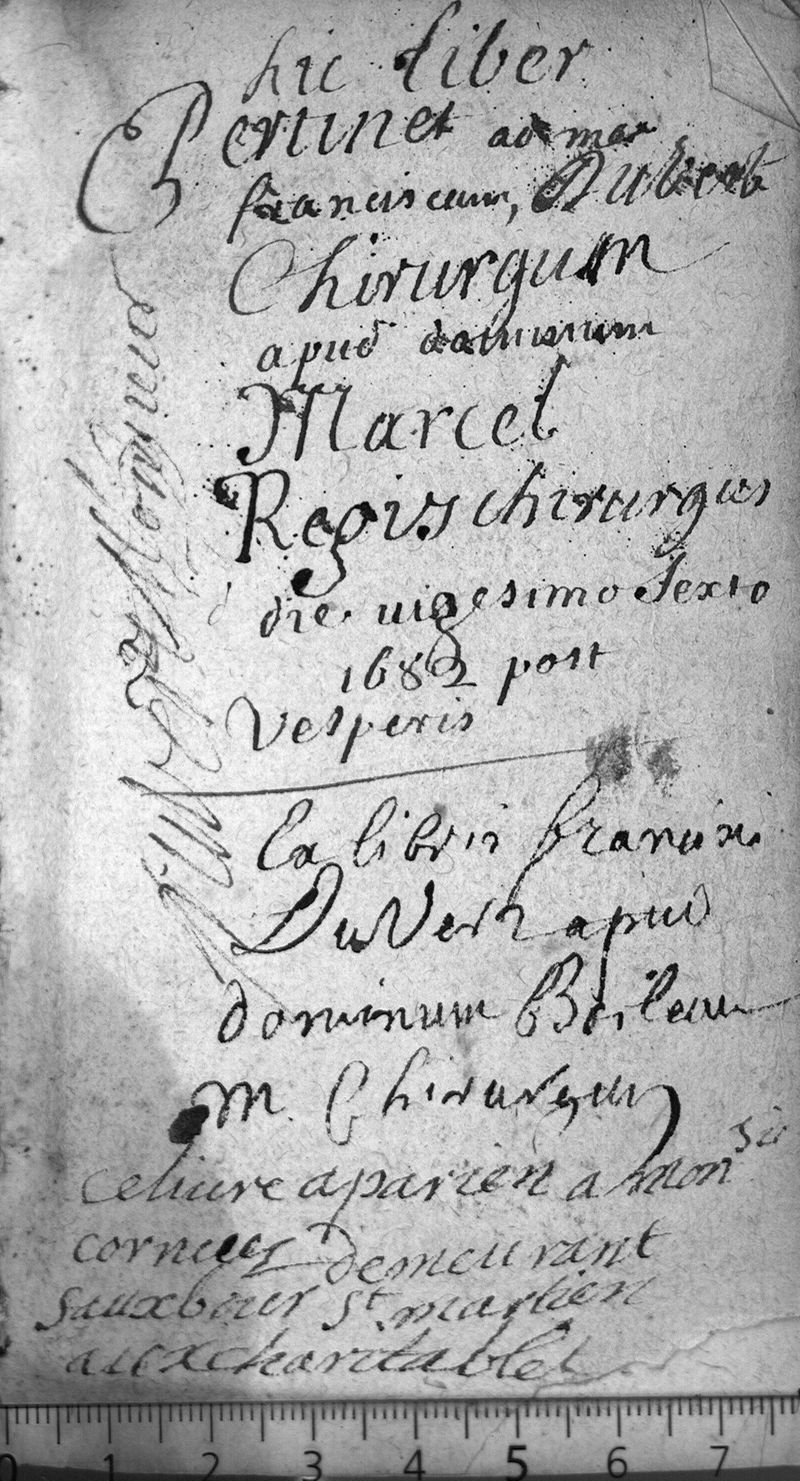 hic liber
Pertinet ad me
franciscum, Duvert
Chirurgum
apud dominum
Marcel
Regius chirurgus
die vigesimo sexto
1682 post
Vesperis
Ex libris francisci
DuVert apud
dominum Boileau
m. Chirurgum
ce liure aparien a mon sie
demeurant
faux bour St martien
aux charitables
0 1 2 3 4 5 6 7